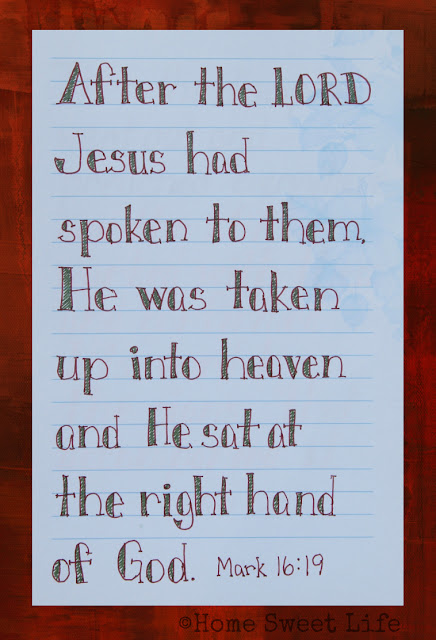 After the LORD
Jesus had
spoken to them,
He was taken
up into heaven
and He sat at
the right hand
of God. Mark 16:19
©Home Sweet Life